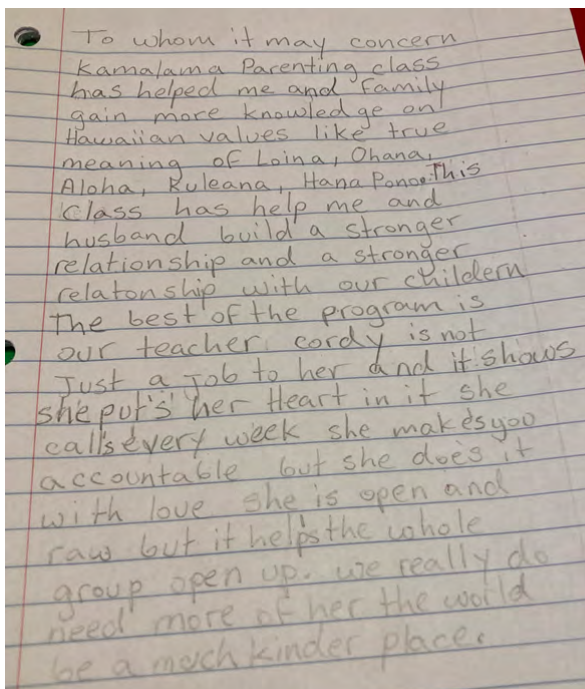 To whom it may concern
Kamalama Parenting class
has helped me and Family
gain more knowledge on
Hawaiian values like true
meaning of Loina, Ohana,
Aloha, Kuleana, Hana Pono. This
Class has help me and
husband build a stronger
relationship and a stronger
relatonship with our childern
The best of the program is
our teacher. cordy is not
Just a Job to her and it shows
she put's her Heart in it she
call's every week she makes you
accountable but she does it
with love she is open and
raw but it helps the whole
group open up. we really do
need more of her the world
be a much kinder place.